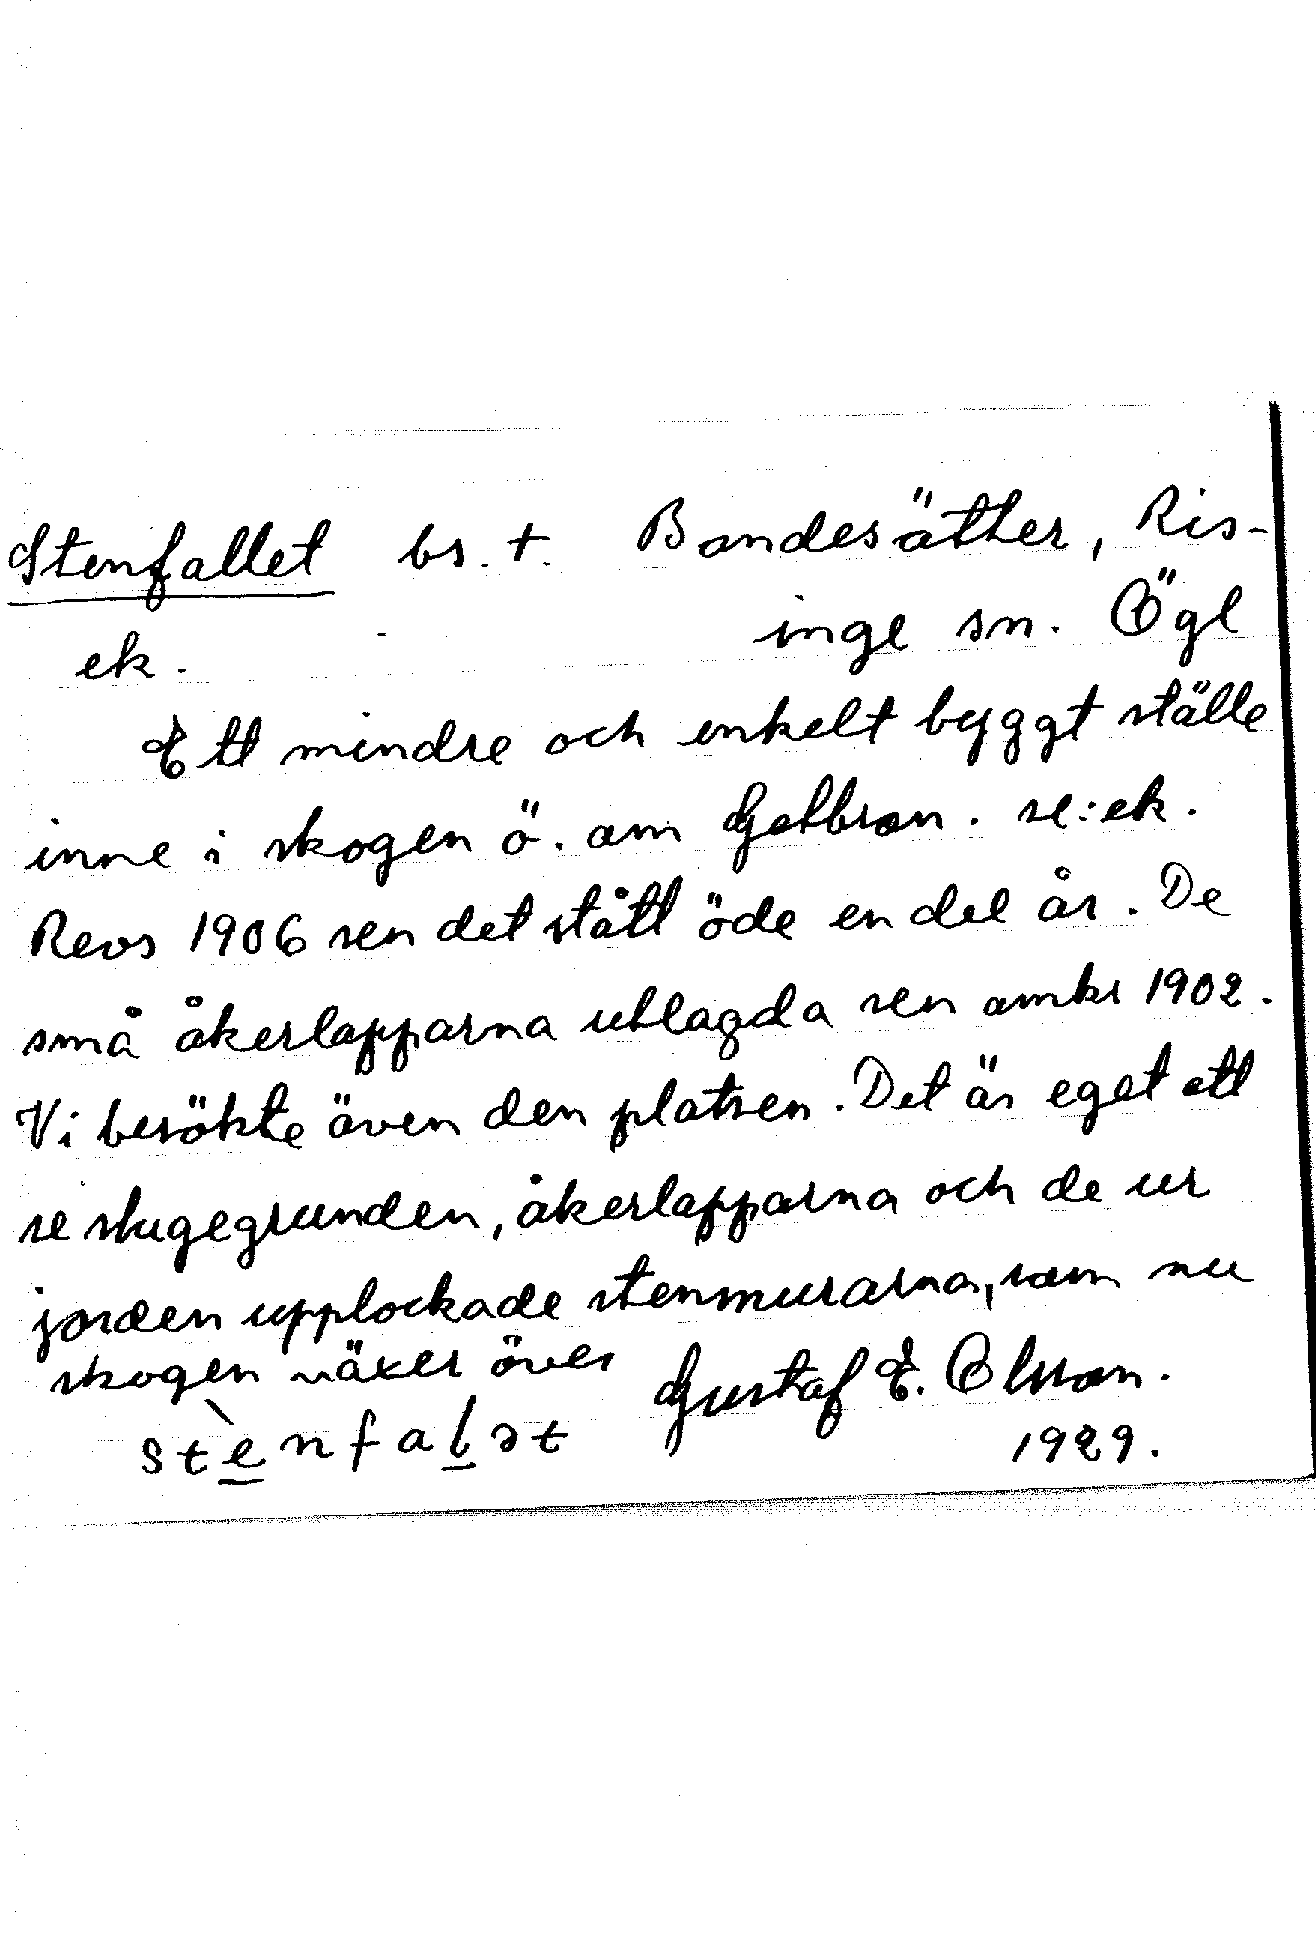 Stenfallet bs. t. Bandesätter, Ris-
inge sn. Ögl
ek.
Ett mindre och enkelt byggt ställe
inne i skogen ö. om Getbron. se: ek.
Revs 1906 sen det stått öde en del år. De
små åkerlapparna utlagda sen omkr 1902.
Vi besökte även den platsen. Det är eget att
se stugegrunden, åkerlapparna och de ur
jorden upplockade stenmurarna, som nu
skogen växer över
Gustaf E. Olsson.
stènfalət
1929.